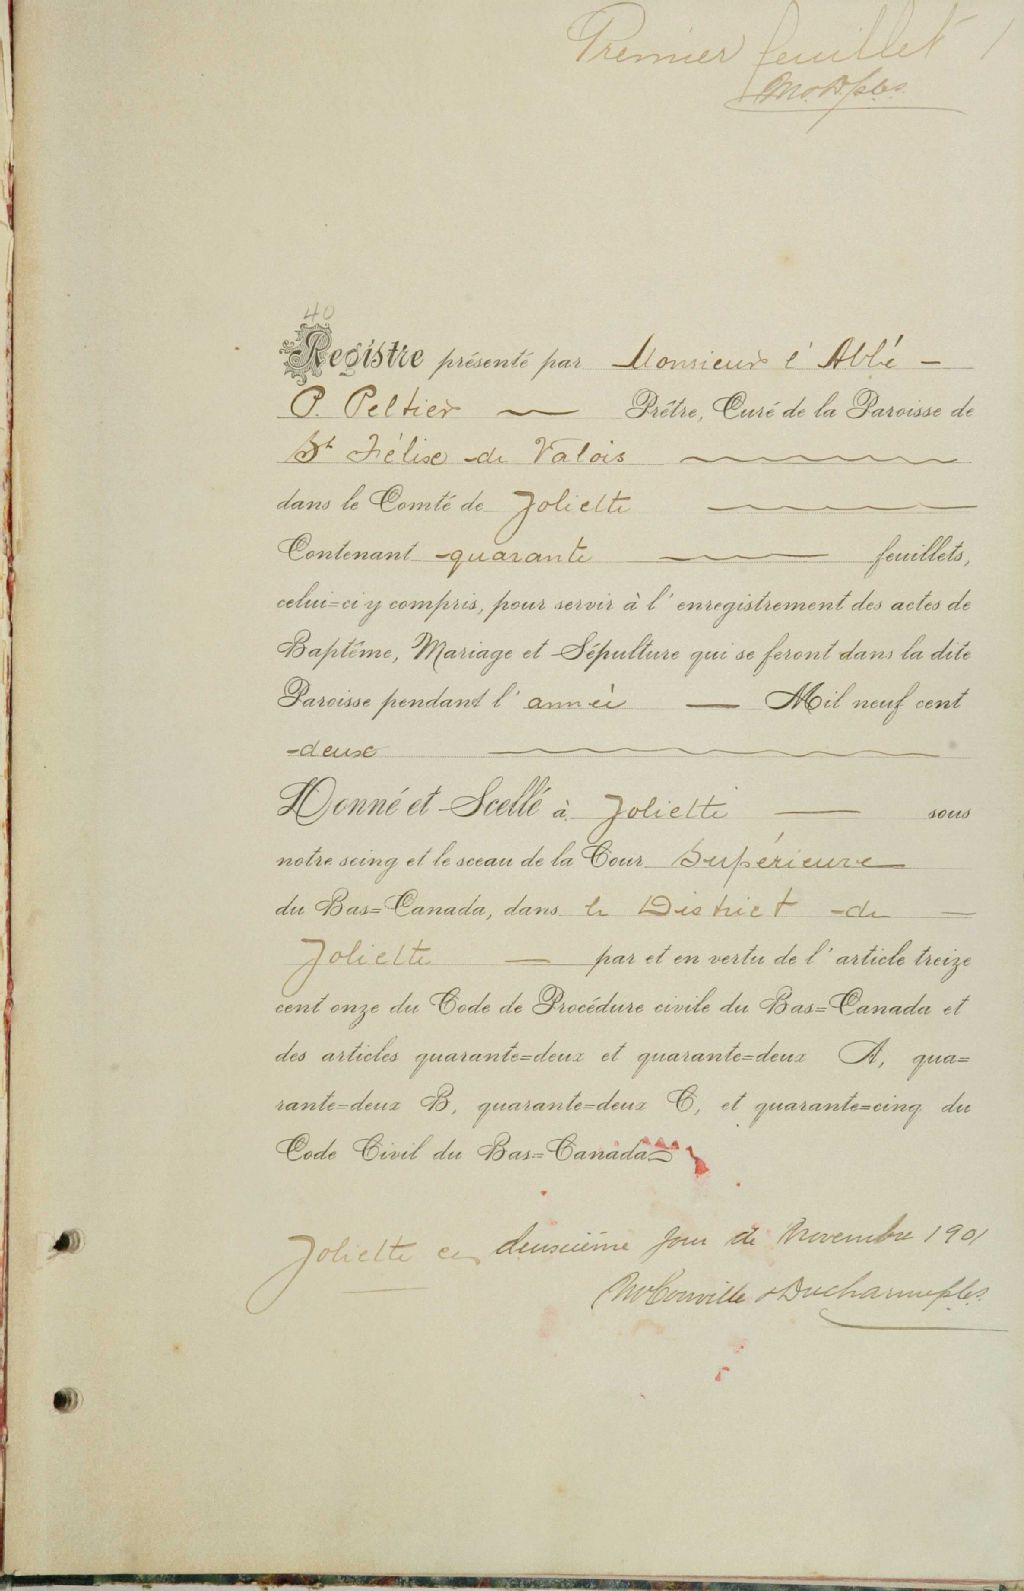 Premier feuillet 1
40
Registre présenté par Monsieur l'Abbé
P. Peltier Prêtre, Curé de la Paroisse de
St Félix de Valois
dans le Comté de Joliette
Contenant quarante feuillets,
celui=ci y compris, pour servir à l'enregistrement des actes de
Baptême, Mariage et Sépulture qui se feront dans la dite
Paroisse pendant l'année Mil neuf cent
deux
Donné et Scellé à Joliette sous
notre seing et le sceau de la Cour Supérieure
du Bas=Canada, dans le District de
Joliette par et en vertu de l'article treize
cent onze du Code de Procédure civile du Bas=Canada et
des articles quarante=deux et quarante=deux A, qua=
rante=deux B, quarante=deux C, et quarante=cinq du
Code Civil du Bas=Canada
Joliette ce deuxième jour de Novembre 1901
McConville & Ducharme